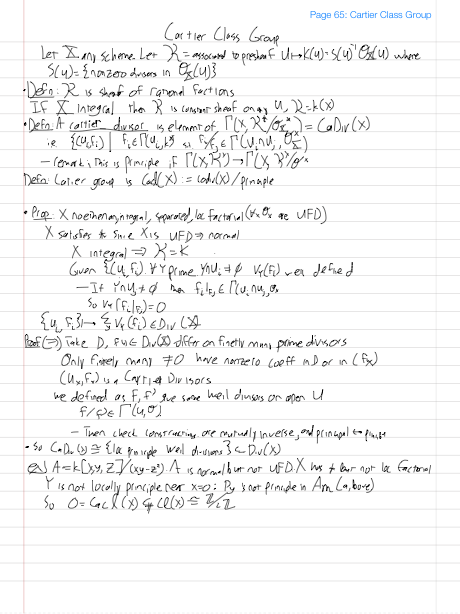 Page 65: Cartier Class Group
Cartier Class Group
Let X any scheme. Let K = associated to presheaf U↦K(U)=S(U)⁻¹ O_X(U) where
S(U) = {nonzero divisors in O_X(U)}
• Defn: K is sheaf of rational functions
If X integral then K is constant sheaf on any U, K = k(X)
• Defn: A cartier divisor is element of Γ(X, K*/O_X*) = CaDiv(X)
i.e. {(U_i, f_i) | f_i ∈ Γ(U_i, K*) s.t. f_i/f_j ∈ Γ(U_i∩U_j, O_X*)
– remark: This is principle if Γ(X, K*) → Γ(X, K*/O*
Defn: Cartier group is CaCl(X) := CaDiv(X)/principle
• Prop: X noetherian, integral, separated, loc factorial (∀x O_x are UFD)
X satisfies * since X is UFD ⇒ normal
X integral ⇒ K = K
Given {(U_i, f_i)} ∀ Y prime Y∩U_i ≠ ∅ V_Y(f_i) well defined
– If Y∩U_j ≠ ∅ then f_i/f_j ∈ Γ(U_i∩U_j, O
So V_Y(f_i/f_j) = 0
{U_i, f_i} ↦ Σ V_Y(f_i) ∈ Div(X)
Proof (⇒) Take D, ∈ Div(X) differ on finitely many prime divisors
Only finitely many ≠0 have nonzero coeff in D or in (f_x)
(U_x, f_x) is a Cartier Divisors
we defined as f, f' give same weil divisors on open U
f/f' ∈ Γ(U, O*)
– Then check constructions are mutually inverse, and principal ↔
• So CaDiv(X) ≅ {loc principle weil divisors} ⊂ Div(X)
A = k[x,y,z]/(xy-z²). A is normal but not UFD. X has * but not loc factorial
Y is not locally principle near x=0: P_Y is not principle in A_m (above)
So 0 = CaCl(X) ⊊ Cl(X) ≅ Z/2Z